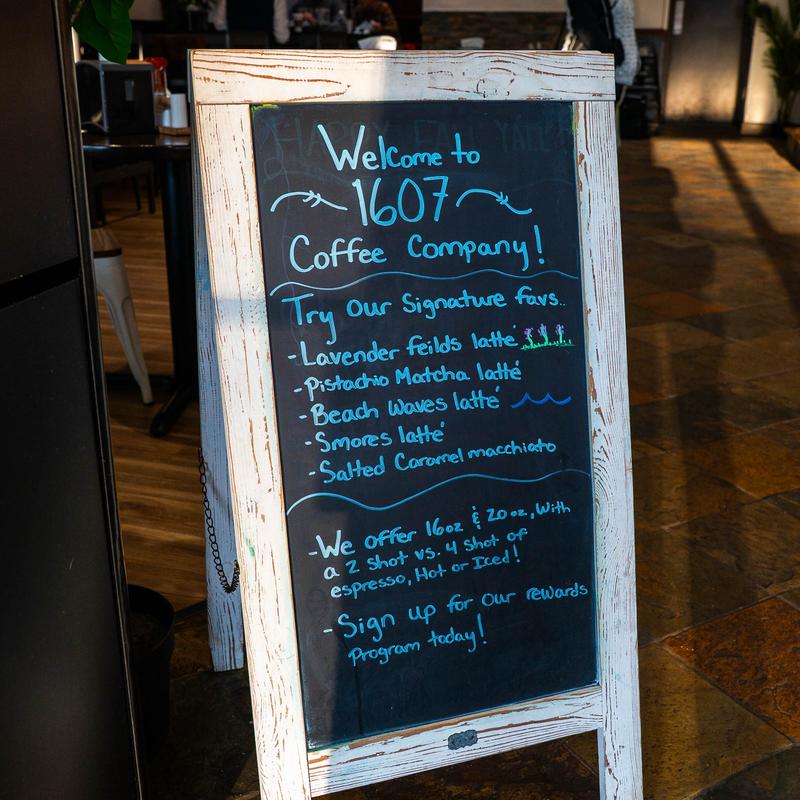 HAPPY FALL YALL
Welcome to
1607
Coffee Company!
Try our Signature favs..
-Lavender feilds latté
-Pistachio Matcha latté
-Beach Waves latté
-Smores latté
-Salted Caramel macchiato
-We offer 16oz & 20oz, With
a 2 shot vs. 4 shot of
espresso, Hot or Iced!
-Sign up for our rewards
Program today!